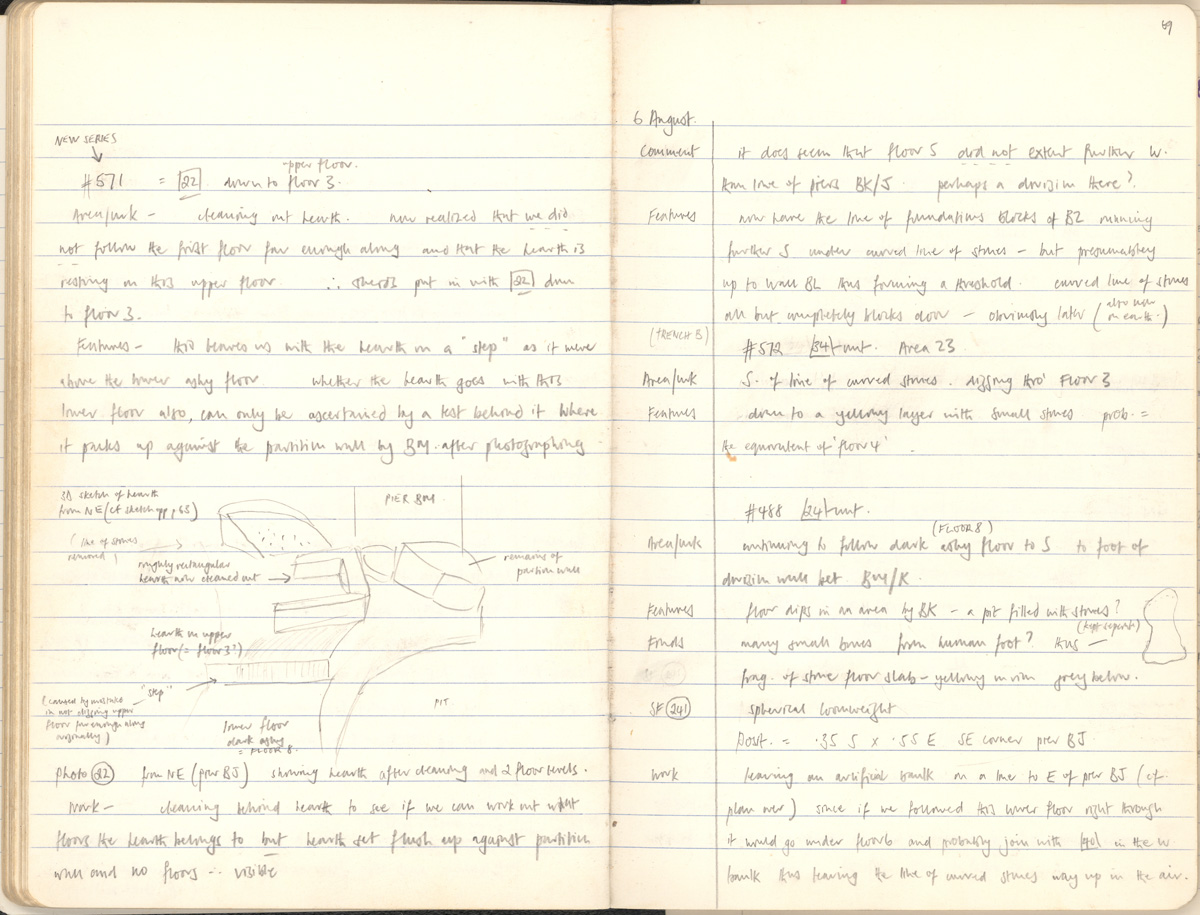 NEW SERIES
-pper floor.
#571 = 22 down to floor 3.
Area/wk - cleaning out hearth. now realized that we did
not follow the first floor far enough along and that the hearth is
resting on this upper floor. ∴ sherds put in with 22 down
to floor 3.
Features - this leaves us with the hearth on a "step" as it were
above the lower ashy floor. whether the hearth goes with this
lower floor also, can only be ascertained by a test behind it where
it packs up against the partition wall by BM. after photographing
3D sketch of hearth
from NE (cf sketch opp p 68)
PIER BM
(line of stones
removed)
roughly rectangular
hearth now cleaned out
remains of
partition wall
hearth on upper
floor (= floor 3')
"step"
(caused by mistake
in not digging upper
floor far enough along
originally)
PIT
lower floor
dark ashy
= FLOOR 8.
Photo 22 from NE (pier BJ) showing hearth after cleaning and 2 floor levels.
Work - cleaning behind hearth to see if we can work out what
floors the hearth belongs to but hearth set flush up against partition
wall and no floors ∴ visible
69
6 August.
Comment it does seem that floor 5 did not extent further W.
than line of piers BK/J. perhaps a division there?
Features now have the line of foundations blocks of BZ running
further S under curved line of stones - but presumabley
up to wall BL thus forming a threshold. curved line of stones
all but completely blocks door - obviously later (also now
on earth.)
(TRENCH B) #572 34 + unt. Area 23
Area/wk S. of line of curved stones. digging thro' Floor 3
Features down to a yellowy layer with small stones prob. =
the equivalent of 'floor 4'.
#488 24 + unt.
(FLOOR 8)
Area/wk continuing to follow dark ashy floor to S to foot of
division wall bet. BM/K.
Features floor dips in an area by BK - a pit filled with stones?
(kept separate)
Finds many small bones from human foot? thus -
frag. of stone floor slab - yellowy in rim grey below.
SF 241 spherical loomweight
Post. = .35 S x .55 E SE corner pier BJ.
Work leaving an artificial baulk on a line to E of pier BJ (cf.
plan over) since if we followed this lower floor right through
it would go under floor 6 and probably join with 40 in the W
baulk thus leaving the line of curved stones way up in the air.